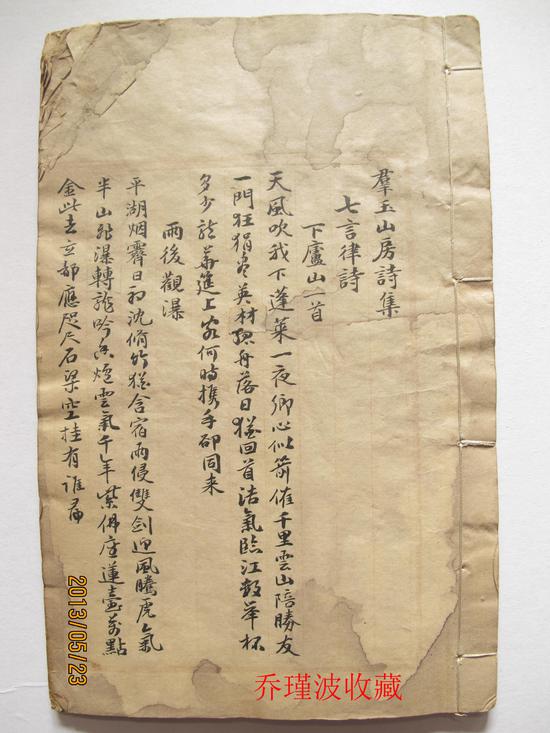 羣玉山房詩集
七言律詩
下廬山一首
天風吹我下蓬萊一夜鄉心似箭催千里雲山陪勝友
一門狂狷盡英材孤舟落日猶回首浩氣臨江數舉杯
多少龍華進上客何時携手卻同来
雨後觀瀑
平湖烟霽日初沈脩竹猶含宿雨侵雙劍迎風騰虎氣
半山飛瀑轉龍吟香爐雲氣千年紫佛座蓮臺萬點
金此去立部應咫尺石梁空挂有誰
2013/05/23
乔瑾波收藏